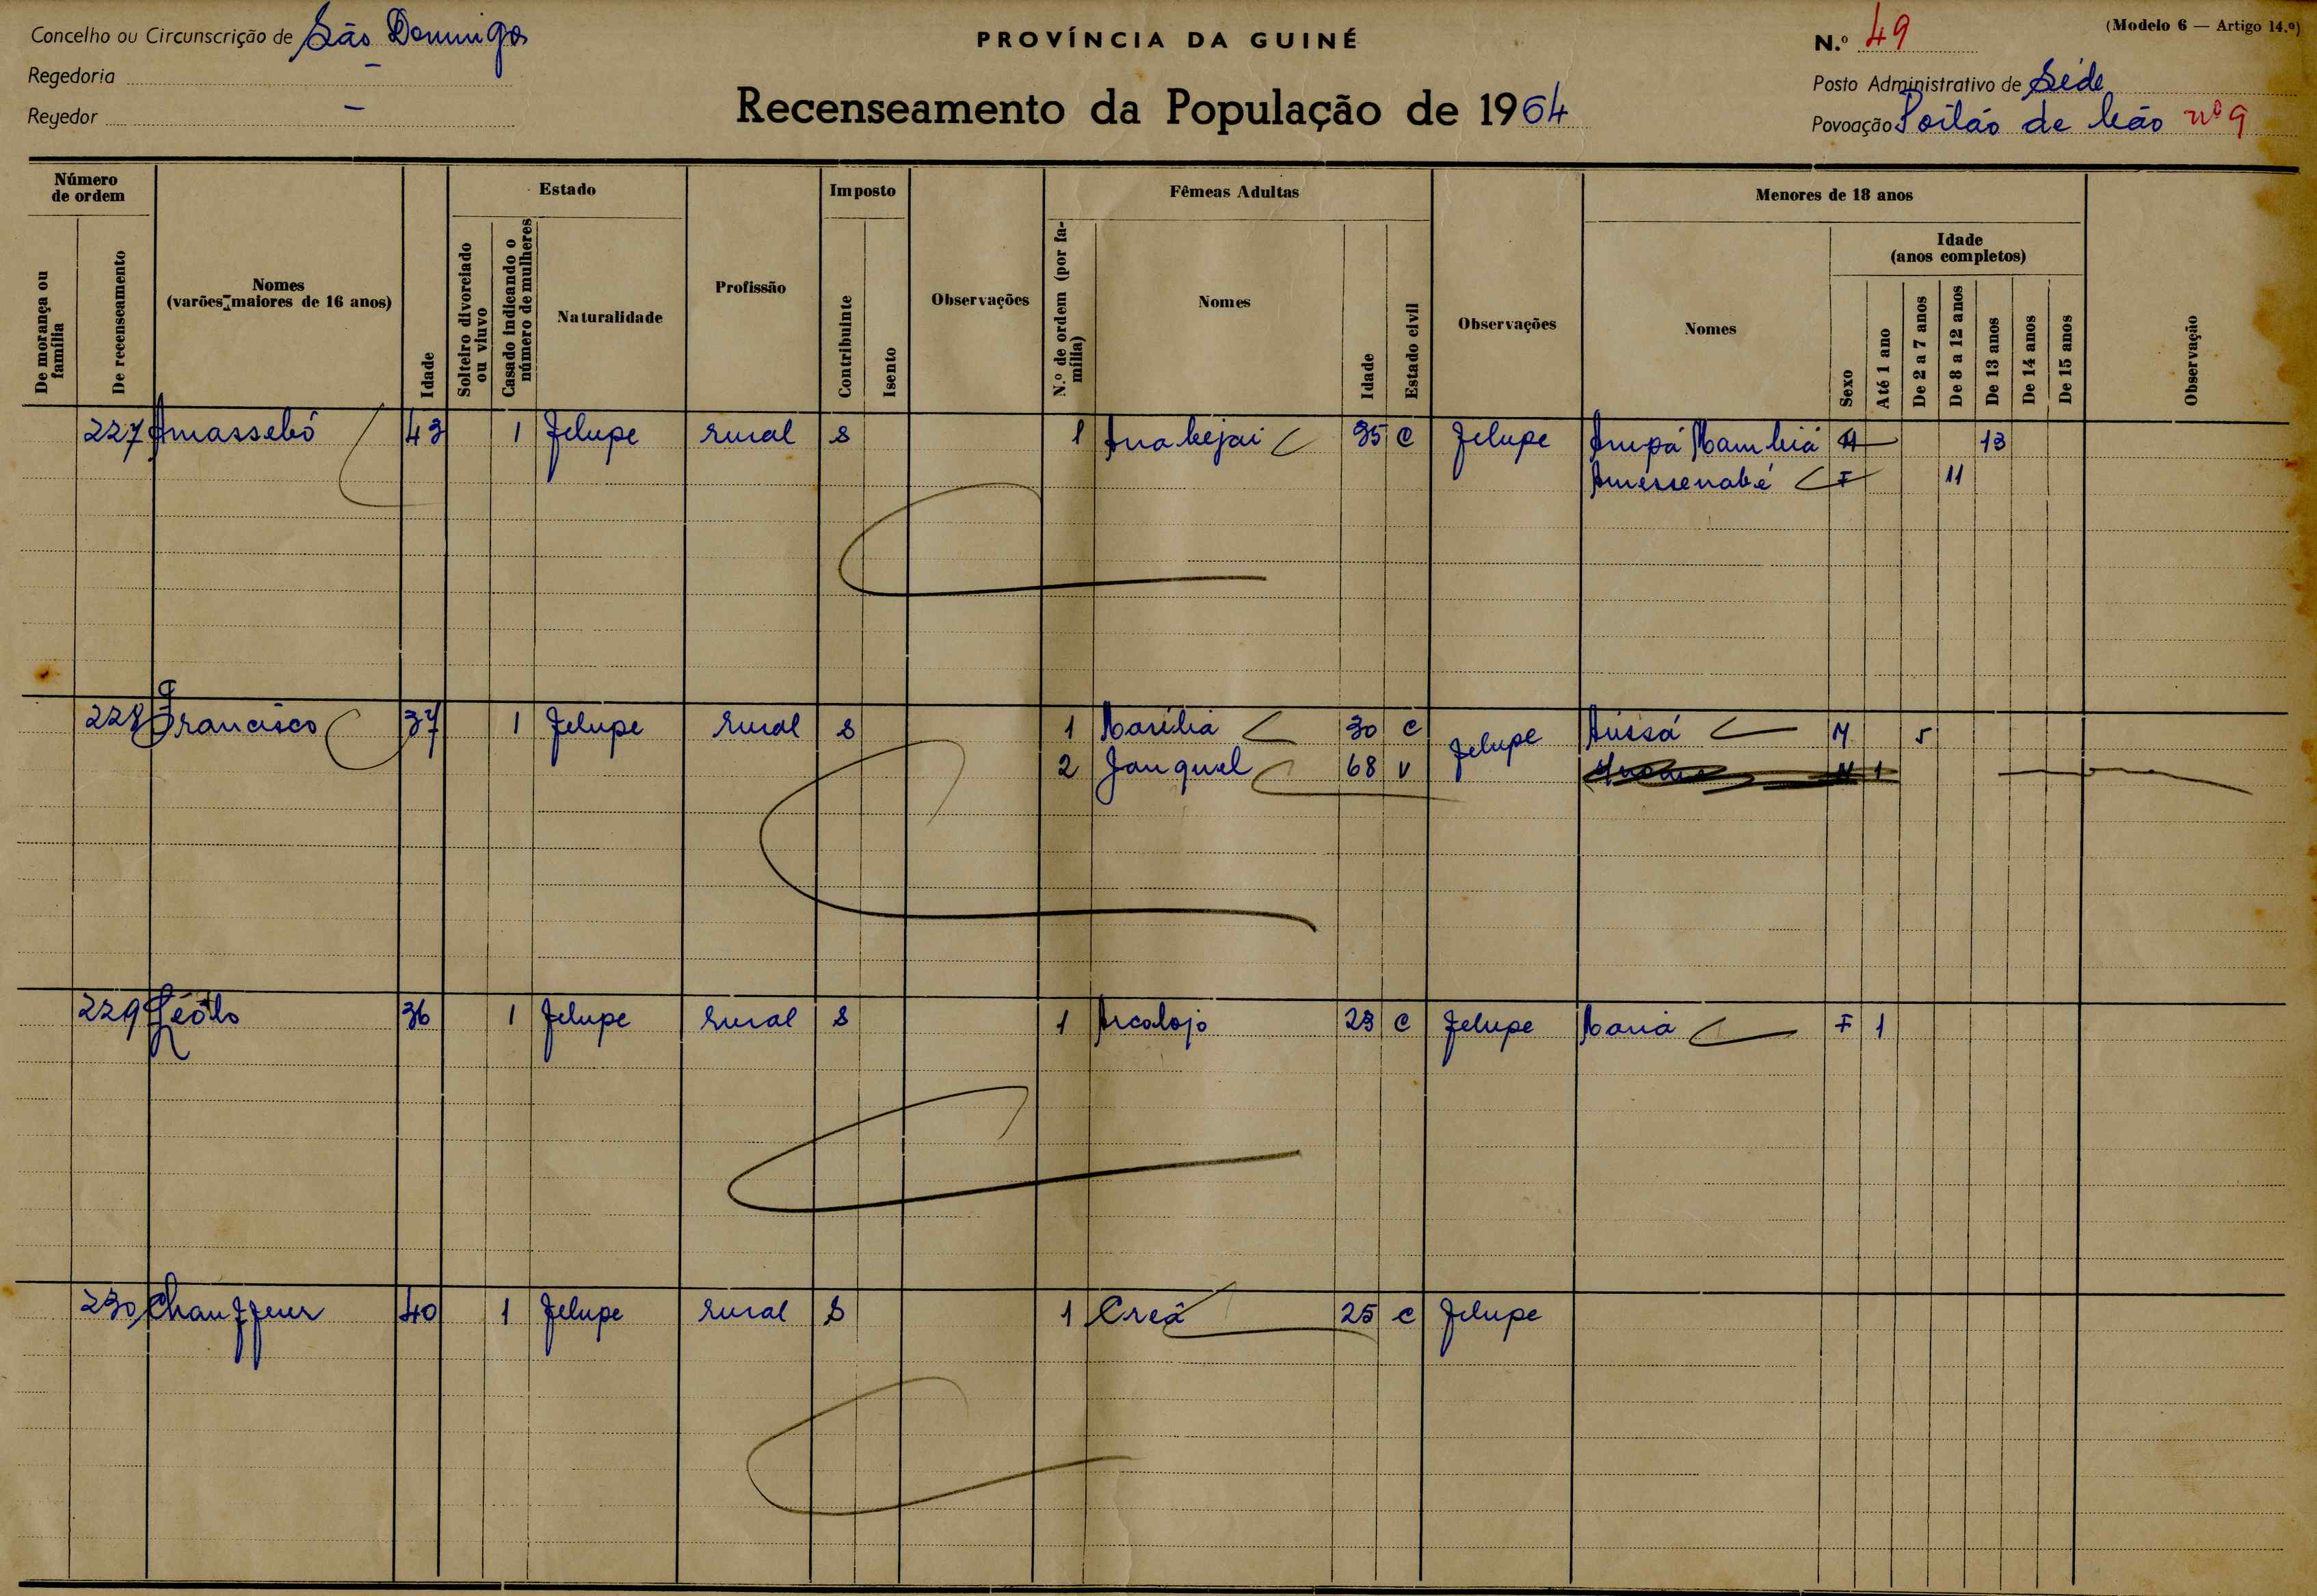 Concelho ou Circunscrição de São Domingos
Regedoria –
Regedor –
PROVÍNCIA DA GUINÉ
Recenseamento da População de 1964
(Modelo 6 — Artigo 14.º)
N.º 49
Posto Administrativo de Séde
Povoação Poilão de Leão nº 9
Número de ordem
De morança ou família
De recenseamento
Nomes
(varões maiores de 16 anos)
Idade
Estado
Solteiro divorciado ou viuvo
Casado indicando o número de mulheres
Naturalidade
Profissão
Imposto
Contribuinte
Isento
Observações
Fêmeas Adultas
N.º de ordem (por família)
Nomes
Idade
Estado civil
Observações
Menores de 18 anos
Nomes
Idade
(anos completos)
Sexo
Até 1 ano
De 2 a 7 anos
De 8 a 12 anos
De 13 anos
De 14 anos
De 15 anos
Observação
227 Amassebó 43 1 Felupe rural S 1 Anabejai 35 C Felupe Ampá Mambiá M 13
Amessenabé F 11
228 Francisco 37 1 Felupe rural S 1 Marília 30 C Felupe Aíssá M 5
2 Janquel 68 V M 1
229 36 1 Felupe rural S 1 Arcolojo 23 C Felupe Maria F 1
230 Chauffeur 40 1 Felupe rural S 1 Creá 25 C Felupe